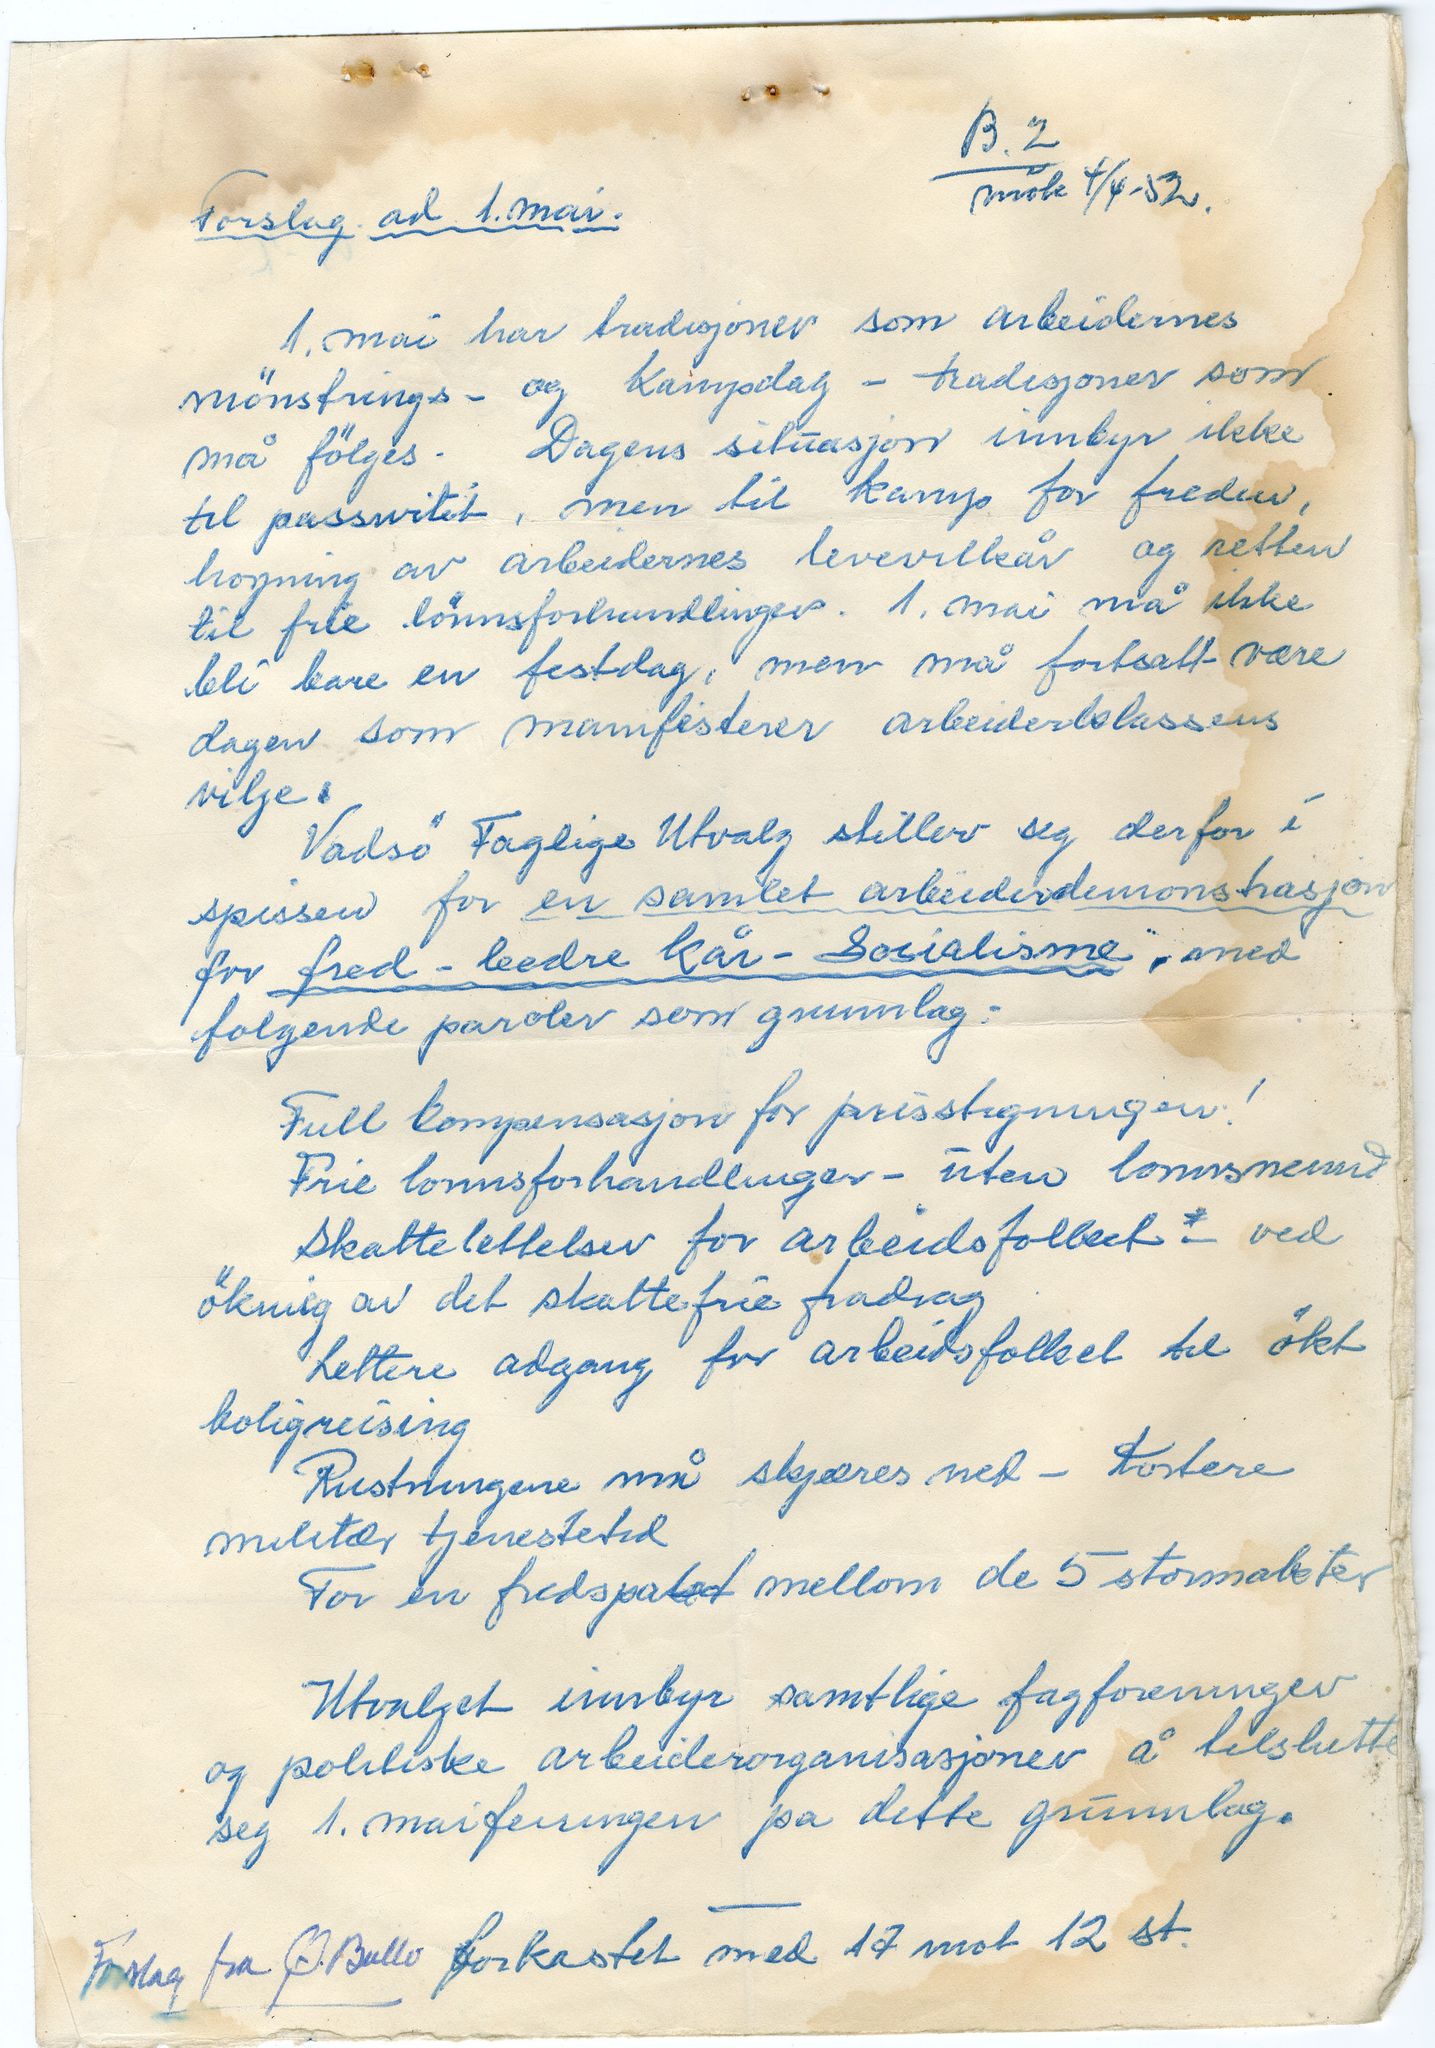 B. 2
møte 4/4-52.
Forslag ad 1. mai.
1. mai har tradisjoner som arbeidernes
mönstrings- og kampdag - tradisjoner som
må fölges. Dagens situasjon innbyr ikke
til passivitet, men til kamp for freden,
hoyning av arbeidernes levevilkår og retten
til frie lönnsforhandlinger. 1. mai må ikke
bli bare en festdag, men må fortsatt være
dagen som manifisterer arbeiderklassens
vilje.
Vadsö Faglige Utvalg stiller seg derfor i
spissen for en samlet arbeiderdemonstrasjon
for fred - bedre kår - Sosialisme", med
folgende paroler som grunnlag:
Full kompensasjon for prisstigningen!
Frie lonnsforhandlinger - uten lonnsnemnd
Skattelettelser for arbeidsfolket - ved
ökning av det skattefrie fradrag
Lettere adgang for arbeidsfolket til ökt
boligreising
Rustningene må skjæres ned - Kortere
militær tjenestetid
For en fredspakt mellom de 5 stormakter
Utvalget innbyr samtlige fagforeninger
og politiske arbeiderorganisasjoner å tilslutte
seg 1. maifeiringen pa dette grunnlag.
Forslag fra Ø. Bullo forkastet med 17 mot 12 st.